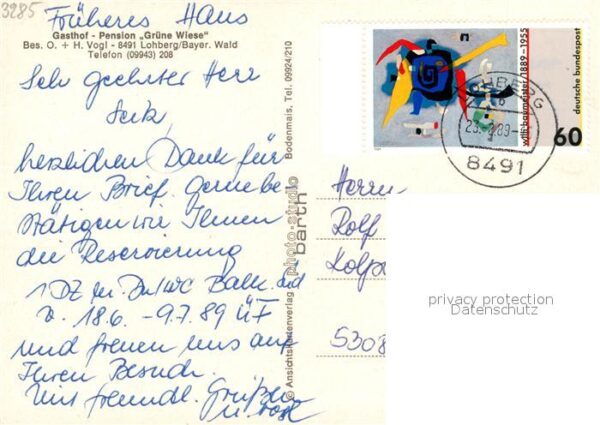 3285
Früheres Haus
Gasthof - Pension „Grüne Wiese"
Bes. O. + H. Vogl - 8491 Lohberg/Bayer. Wald
Telefon (09943) 208
Sehr geehrter Herr
herzlichen Dank für
Ihren Brief. Gerne be-
stätigen wir Ihnen
die Reservierung
1 DZ m. Du/WC Balk.
v. 18.6. - 9.7.89 ÜF
und freuen uns auf
Ihren Besuch.
Mit freundl. Grüßen
© Ansichtskartenverlag photo-studio barth Bodenmais, Tel. 09924/210
willi baumeister/1889-1955
deutsche bundespost
60
LOHBERG
8491
Herrn
Rolf
5308
privacy protection
Datenschutz